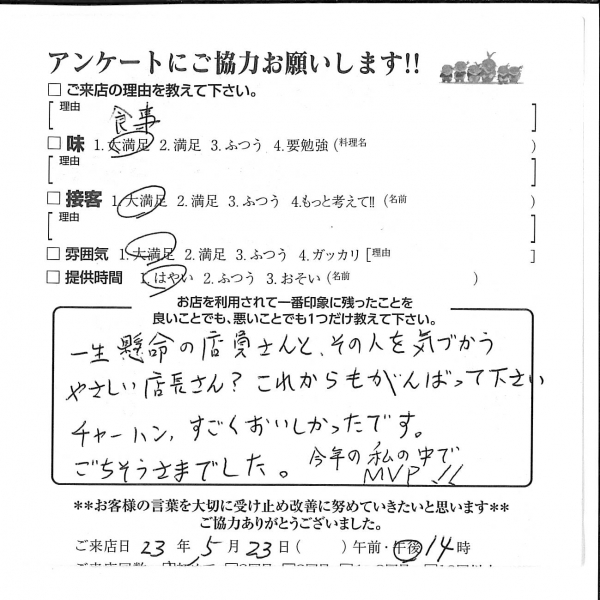 アンケートにご協力お願いします!!
□ ご来店の理由を教えて下さい。
[ 理由 食事 ]
□ 味 1.大満足 2.満足 3.ふつう 4.要勉強 (料理名 )
[ 理由 ]
□ 接客 1.大満足 2.満足 3.ふつう 4.もっと考えて!! (名前 )
[ 理由 ]
□ 雰囲気 1.大満足 2.満足 3.ふつう 4.ガッカリ [理由 ]
□ 提供時間 1.はやい 2.ふつう 3.おそい (名前 )
お店を利用されて一番印象に残ったことを
良いことでも、悪いことでも1つだけ教えて下さい。
一生懸命の店員さんと、その人を気づかう
やさしい店長さん? これからもがんばって下さい
チャーハン、すごくおいしかったです。
ごちそうさまでした。 今年の私の中で
MVP!!
**お客様の言葉を大切に受け止め改善に努めていきたいと思います**
ご協力ありがとうございました。
ご来店日 23 年 5 月 23 日 ( ) 午前・午後 14 時